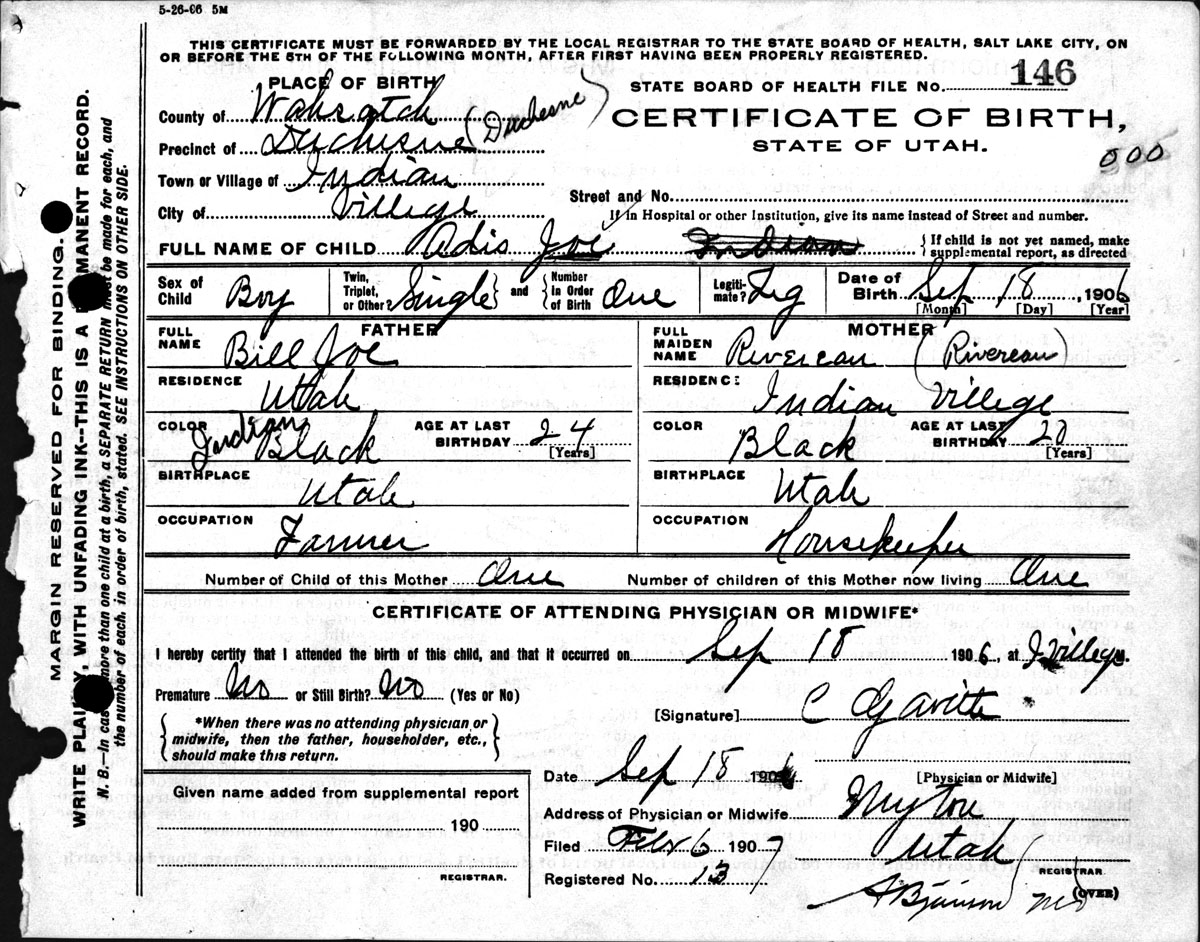 5-26-06 5M
THIS CERTIFICATE MUST BE FORWARDED BY THE LOCAL REGISTRAR TO THE STATE BOARD OF HEALTH, SALT LAKE CITY, ON
OR BEFORE THE 5TH OF THE FOLLOWING MONTH, AFTER FIRST HAVING BEEN PROPERLY REGISTERED.
PLACE OF BIRTH
STATE BOARD OF HEALTH FILE NO. 146
County of Wahsatch
CERTIFICATE OF BIRTH,
Precinct of Duchesne (Duchesne)
STATE OF UTAH.
000
Town or Village of Indian
Street and No.
City of Villege
If in Hospital or other Institution, give its name instead of Street and number.
FULL NAME OF CHILD Adis Joe Indian { If child is not yet named, make supplemental report, as directed
Sex of Child Boy Twin, Triplet, or Other? Single } and { Number In Order of Birth One Legiti-mate? Leg Date of Birth Sep 18, 1906
[Month] [Day] [Year]
FATHER
FULL NAME Bill Joe
RESIDENCE Utah
COLOR Indian Black AGE AT LAST BIRTHDAY 24 [Years]
BIRTHPLACE Utah
OCCUPATION Farmer
MOTHER
FULL MAIDEN NAME Rivereau (Rivereau)
RESIDENCE Indian Villege
COLOR Black AGE AT LAST BIRTHDAY 20 [Years]
BIRTHPLACE Utah
OCCUPATION Housekeeper
Number of Child of this Mother One Number of children of this Mother now living One
CERTIFICATE OF ATTENDING PHYSICIAN OR MIDWIFE*
I hereby certify that I attended the birth of this child, and that it occurred on Sep 18 1906, at I Villege.
Premature No or Still Birth? No (Yes or No)
[Signature] C Gavitt
{ *When there was no attending physician or
midwife, then the father, householder, etc.,
should make this return. }
Date Sep 18 1906
[Physician or Midwife]
Given name added from supplemental report
190
REGISTRAR.
Address of Physician or Midwife Myton
Utah
Filed Feb 6 1907
Registered No. 13
REGISTRAR.
(OVER)
MARGIN RESERVED FOR BINDING.
WRITE PLAINLY, WITH UNFADING INK--THIS IS A PERMANENT RECORD.
N. B.—In case of more than one child at a birth, a SEPARATE RETURN must be made for each, and
the number of each, in order of birth, stated. SEE INSTRUCTIONS ON OTHER SIDE.